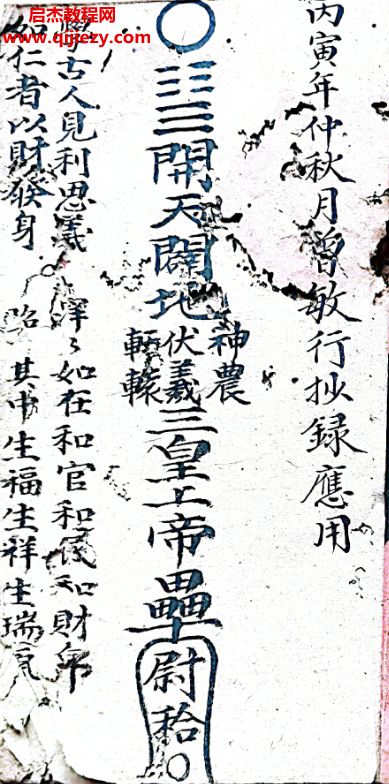 启杰教程网
www.qjiezy.com
丙寅年仲秋月曾敏行抄錄應用
開天闢地
神農
伏羲
軒轅
三皇上帝
尉
學古人見利思義
洋洋如在和官和民和財帛
仁者以財發身
其中生福生祥生瑞氣